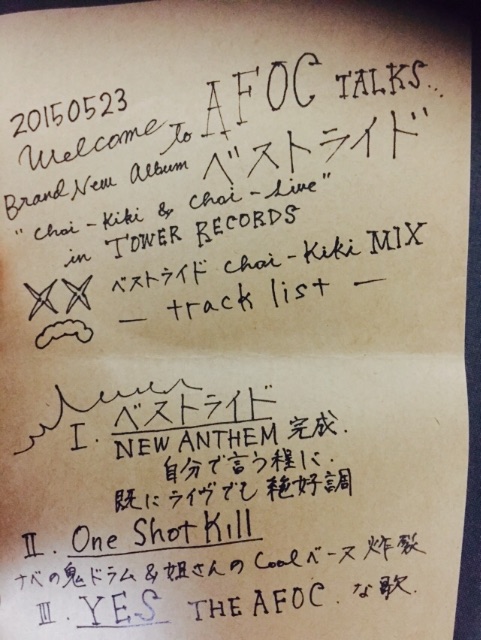 20150523
Welcome to AFOC TALKS...
Brand New Album ベストライド
"Choi-Kiki & Choi-Live"
in TOWER RECORDS
ベストライド Choi-Kiki MIX
— track list —
I. ベストライド
NEW ANTHEM 完成.
自分で言う程に.
既にライヴでも絶好調
II. One Shot Kill
ナベの鬼ドラム&姐さんのCoolベース炸裂
III. YES THE AFOC. な歌.